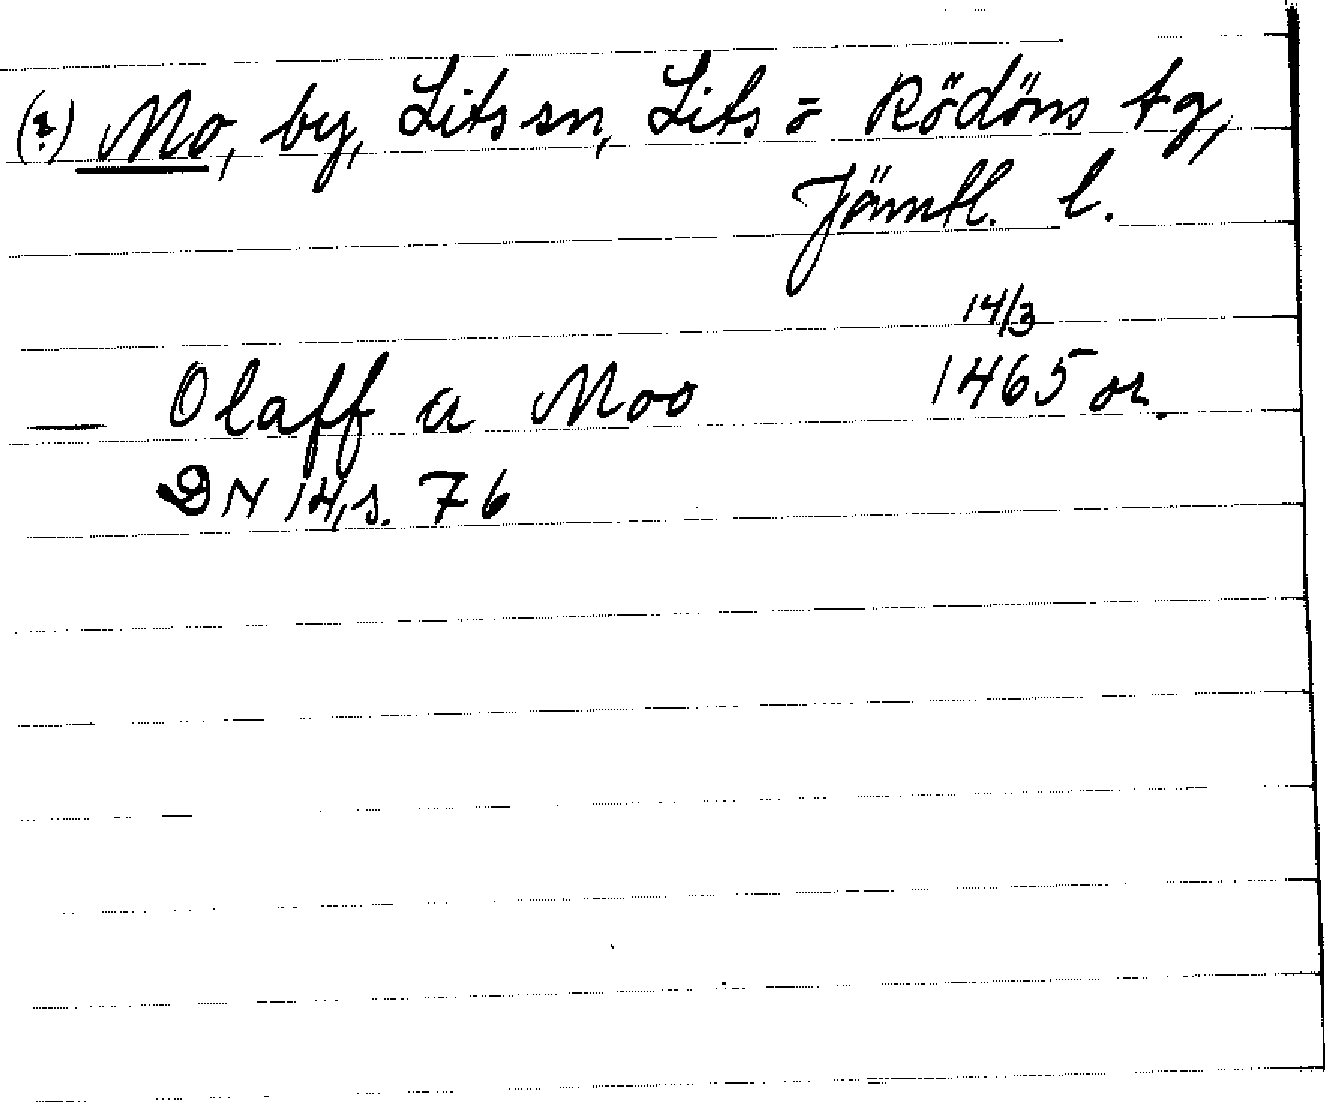 (?) Mo, by, Lits sn, Lits o Rödöns tg,
Jämtl. l.
14/3
— Olaff a Moo 1465 or.
DN 14, s. 76